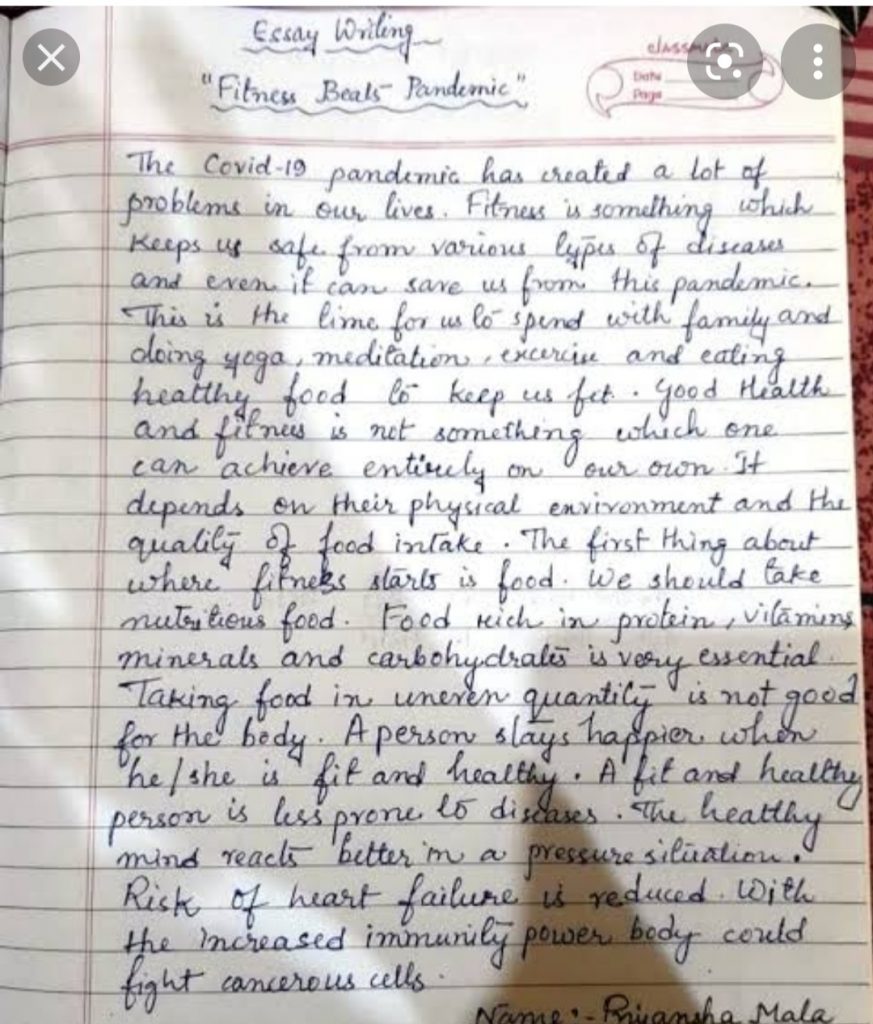 Essay Writing
"Fitness Beats Pandemic"
classmate
Date
Page
The Covid-19 pandemic has created a lot of
problems in our lives. Fitness is something which
Keeps us safe from various types of diseases
and even it can save us from this pandemic.
This is the time for us to spend with family and
doing yoga, meditation, excercise and eating
healthy food to keep us fit. Good Health
and fitness is not something which one
can achieve entirely on our own. It
depends on their physical environment and the
quality of food intake. The first thing about
where fitness starts is food. We should take
nutritious food. Food rich in protein, vitamins
minerals and carbohydrates is very essential.
Taking food in uneven quantity is not good
for the body. A person stays happier when
he/she is fit and healthy. A fit and healthy
person is less prone to diseases. The healthy
mind reacts better in a pressure situation.
Risk of heart failure is reduced. With
the increased immunity power body could
fight cancerous cells.
Name:- Priyansha Mala